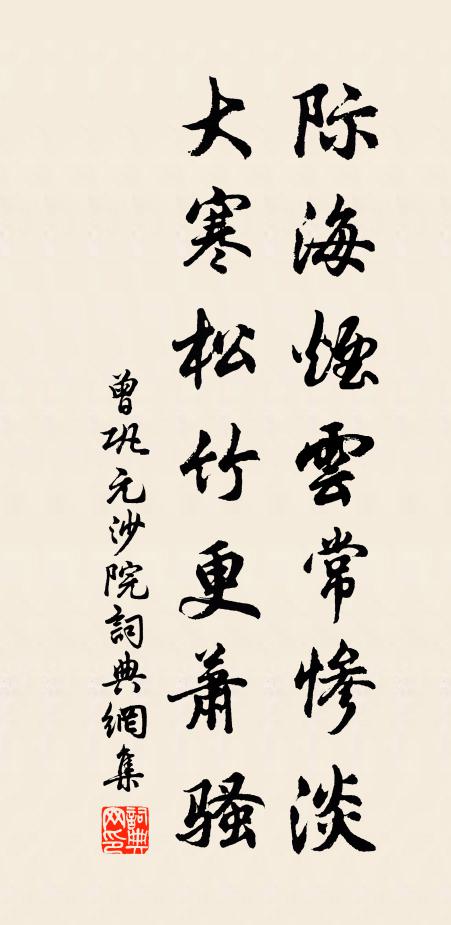 际海煙雲常惨淡
大寒松竹更蕭骚
曾巩元沙院詞典網集
詞典網印